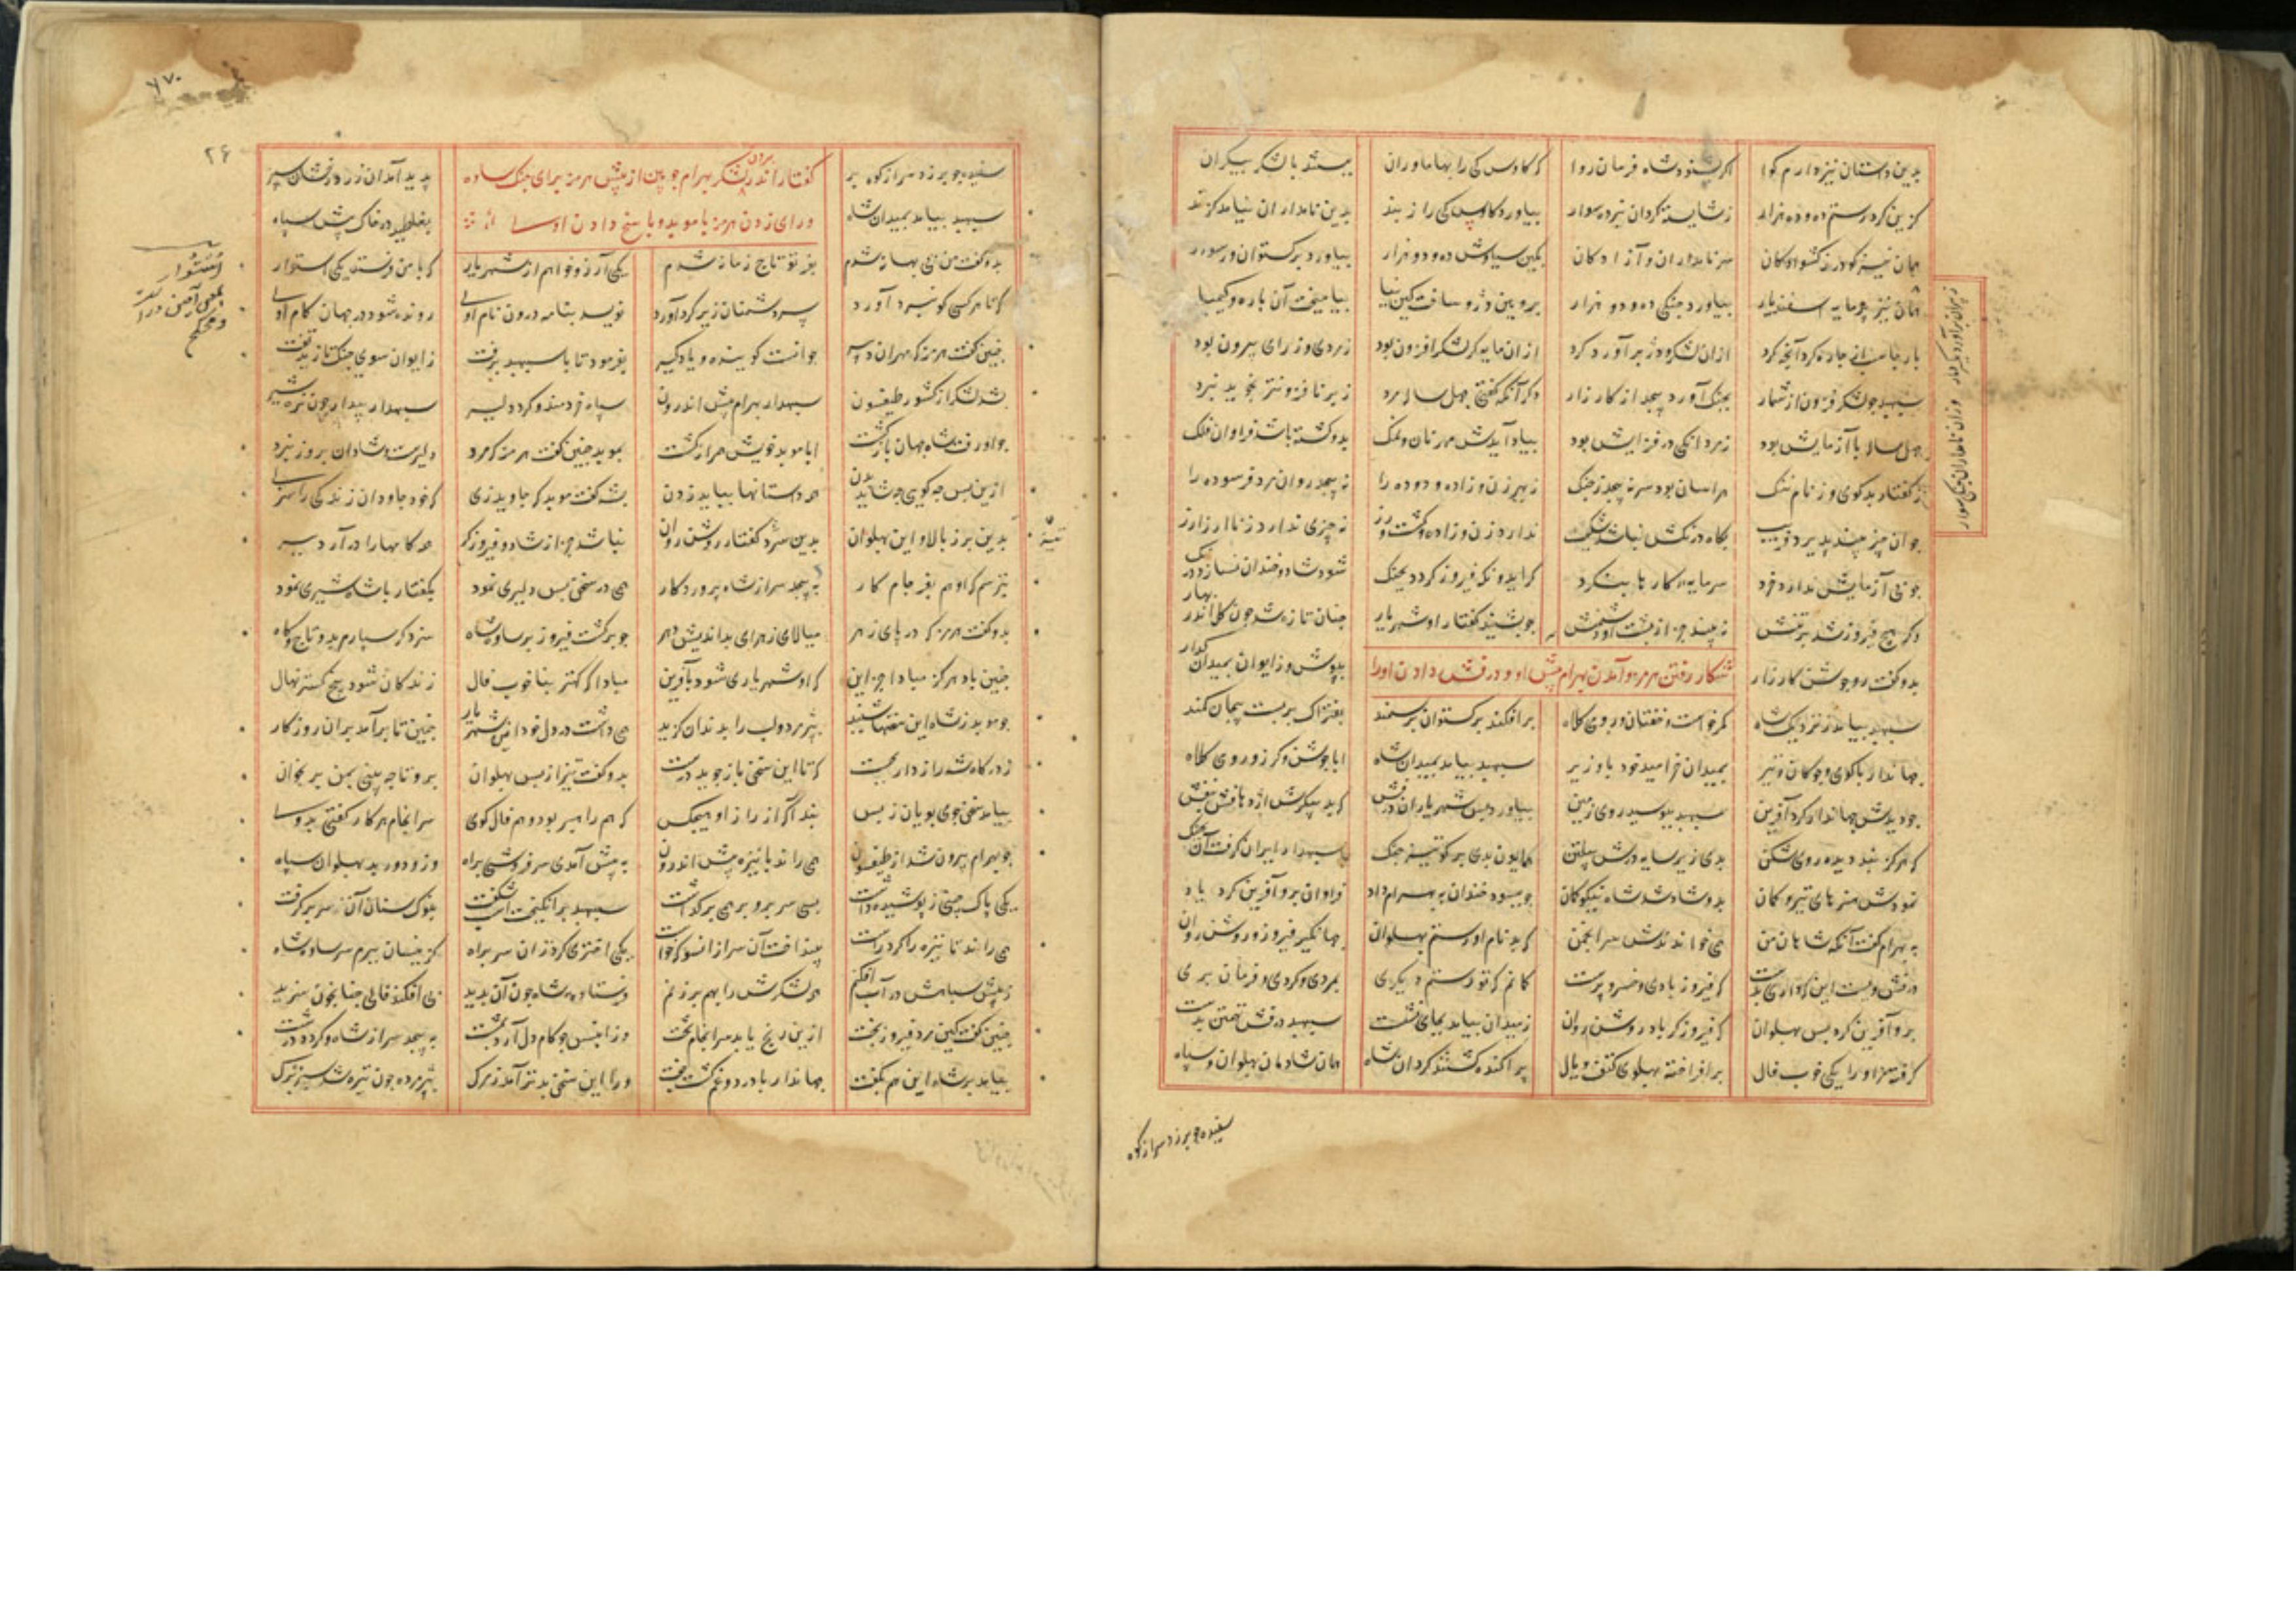 بدین داستان نیز دارم گوا اگر بشنود شاه فرمان روا که کاوس کی را بهاماوران ببستند با لشکر بیکران
گزین کرد رستم ده و دو هزار ز شایسته گردان نیزه سوار بیاورد کاوس کی را ز بند بدین نامداران نیامد گزند
همان نیز گودرز کشوادگان سر نامداران و آزادگان بکین سیاوش ده و دو هزار بیاورد برگستوان ور سوار
همان نیز پرمایه اسفندیار بیاورد جنگی ده و دو هزار برویین دژ و ساخت کین نیا بیامیخت آن باره و کیمیا
بارجاسب از چاره کرد آنچه کرد ازان لشکر و دژ برآورد گرد از آن مایه گر لشکر افزون بود ز مردی و از رای بیرون بود
سپهبد چو لشکر فزون از شمار بجنگ آورد پیچد از کارزار دگر آنکه گفتی چهل ساله مرد ز برنا فزونتر نجوید نبرد
چهل ساله با آزمایش بود ز مردانگی در فزایش بود بیاد آیدش مهر نان و نمک بدو گشته باشد فراوان فلک
ز گفتار بدگوی وز نام ننگ هراسان بود سر نپیچد ز جنگ ز بهر زن و زاده و دوده را نپیچد روان مرد فرسوده را
جوان چیز بیند پذیرد فریب بگاه درنگش نباشد شکیب ندارد زن و زاده و کشت و ورز نه چیزی ندارد ز نا ارز ارز
چو بی آزمایش ندارد خرد سر مایه کارها ننگرد گر ایدونکه فیروز گردد بجنگ شود شاد و خندان نسازد درنگ
وگر هیچ فیروز شد بر تنش نبیند جز از پشت او دشمنش چو بشنید گفتار او شهریار چنان تازه شد چون گل اندر بهار
بدو گفت رو جوشن کارزار بپوش و ز ایوان بمیدان گذار
شکار رفتن هرمز و آمدن بهرام پیش او و درفش دادن اورا
سپهبد بیامد ز نزدیک شاه کمر خواست و خفتان و رومی کلاه برافکند برگستوان بر سمند بفتراک بر بست پیچان کمند
جهاندار با گوی و چوگان و تیر بمیدان خرامید خود با وزیر سپهبد بیامد بمیدان شاه ابا جوشن و گرز و رومی کلاه
چو دیدش جهاندار کرد آفرین سپهبد ببوسید روی زمین بیاورد پس شهریار آن درفش که بد پیکرش اژدهافش بنفش
که هرگز نبد دیده روی شکن بدی زیر سایه درش پیلتن همایون بدی بر گو تیزچنگ سپهدار ایران گرفت آن بجنگ
نمودش هنرهای تیر و کمان بدو شاد شد شاه نیکو گمان چو ببسود خندان به بهرام داد فراوان برو آفرین کرد یاد
به بهرام گفت آنکه شاهان من همی خواندندش سر انجمن که بد نام او رستم پهلوان جهانگیر فیروز و روشن روان
درفش ویست این که داری بدست که فیروز بادی و خسروپرست گمانم که تو رستم دیگری بمردی و گردی و فرمان بری
برو آفرین کرد پس پهلوان که فیروزگر باد روشن روان ز میدان بیامد بجای نشست سپهبد درفش تهمتن بدست
گرفته مر او را یکی خوب فال برافراخته پهلوی کتف و یال پراکنده گشتند گردان شاه همان شادمان پهلوان و سپاه
سفیده چو برزد سر از کوه
سفیده چو برزد سر از کوه بر پدید آمد آن زرد رخشان سپر
گفتار اندر لشکر بردن بهرام چوبین از پیش هرمز برای جنگ ساوه
ورای زدن هرمز با موبد و پاسخ دادن او
سپهبد بیامد بمیدان شاه بغلطید در خاک پیش سپاه
بدو گفت من بی بهانه شدم بفر تو تاج زمانه شدم یکی آرزو خواهم از شهریار که با من فرستد یکی استوار
که تا هر کسی کو نبرد آورد سر دشمنان زیر گرد آورد نویسد بنامه درون نام اوی رونده شود در جهان کام اوی
چنین گفت هرمز که مهران دبیر جوانست گوینده و یادگیر بفرمود تا با سپهبد برفت ز ایوان سوی جنگ تازید تفت
بشد لشکر از کشور طیسفون سپهدار بهرام پیش اندرون سپاه خردمند و گرد و دلیر سپهدار بیدار چون نره شیر
چو او رفت شاه جهان بازگشت ابا موبد خویش همراز گشت بموبد چنین گفت هرمز که مرد دلیرست و شادان بروز نبرد
ازین پس چه گویی چه شاید بدن همه داستانها بباید زدن بشه گفت موبد که جاوید زی که خود جاودان زندگی را سزی
بدین برز بالا و این پهلوان بدین سرد گفتار روشن روان نباشد جز از شاد و فیروزگر همه کامها را درآرد ببر
بترسم که او هم بفرجام کار بپیچد سر از شاه پروردگار همی در سخن بس دلیری نمود بگفتار با شاه شیری نمود
بدو گفت هرمز که در پای زهر میالای زهر ای بداندیش دهر چو برگشت فیروز بر ساوه شاه سزد گر سپارم بدو تاج و گاه
چنین باد هرگز مبادا جز این که او شهریاری شود بآفرین مبادا که کمتر بنا خوب فال
چو موبد ز شاه این سخنها شنید بپژمرد و لب را بدندان گزید همی داشت در دل خود این شهریار چنین تا برآمد بران روزگار
ز درگاه شه رازداری بجست که تا این سخن باز جوید درست بدو گفت تیز از پس پهلوان برو تا چه بینی بمن بر بخوان
بیامد سخن جوی پویان ز پس نبد آگه از راز او هیچکس که هم راهبر بود و هم فال گوی سرانجام هر کار گفتی بدوی
چو بهرام بیرون شد از طیسفون همی راند با نیزه پیش اندرون به پیش آمدش سرفروشی براه وزو دور بد پهلوان سپاه
سپهبد برانگیخت اسپ شگفت بنوک سنان آن سر برگرفت
همی راند تا نیزه را کرد راست بینداخت آن سر از انسو که خواست یکی اختری کرد زان سر براه کزینسان ببرم سر ساوه شاه
به پیش سپاهش در آب افگنم همه لشکرش را بهم برزنم فرستاده شاه چون آن بدید پی افکند فالی چنانچون سزید
چنین گفت کین مرد فیروز بخت ازین رنج یابد سرانجام تخت وزان پس چو کام دل آرد بمشت بپیچد سر از شاه و گردد درشت
بیامد بر شاه این هم بگفت جهاندار با درد و غم گشت جفت ورا این سخن بدتر آمد ز مرگ بپژمرد چون تیره شد سبز برگ